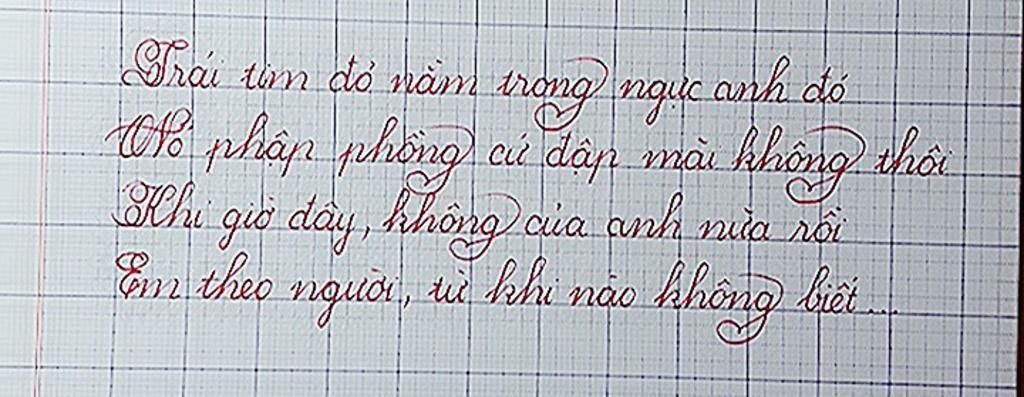 Trái tim đỏ nằm trong ngực anh đó
Nó phập phồng cứ đập mãi không thôi
Khi giờ đây, không của anh nữa rồi
Em theo người, từ khi nào không biết...